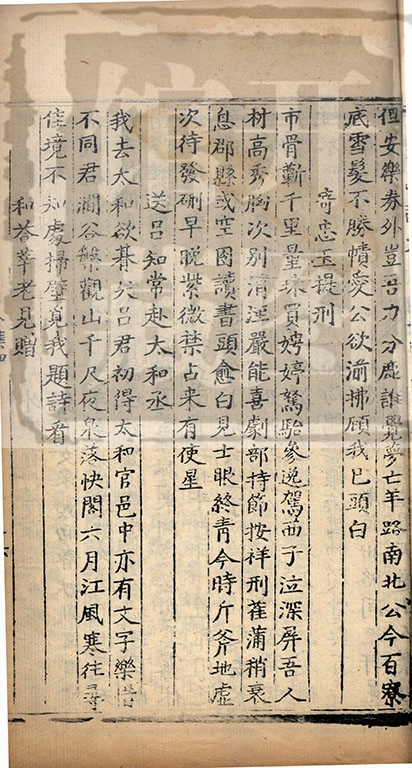 但安樂券外豈吾力分鹿誰覺夢亡羊路南北公今百寮
底雪髮不勝幘愛公欲湔拂顧我已頭白
寄忠玉提刑
市骨蘄千里量珠買娉婷駑駘參逸駕西子泣深屏吾人
材高秀胸次別渭涇嚴能喜劇部持節按祥刑萑蒲稍衰
息郡縣或空囹讀書頭愈白見士眼終青今時斤斧地虛
次待發硎早晚紫微禁占來有使星
送呂知常赴太和丞
我去太和欲朞矣呂君初得太和官邑中亦有文字樂得
不同君澗谷槃觀山千尺夜泉落快閣六月江風寒往尋
佳境不知處掃壁覓我題詩看
和荅莘老見贈